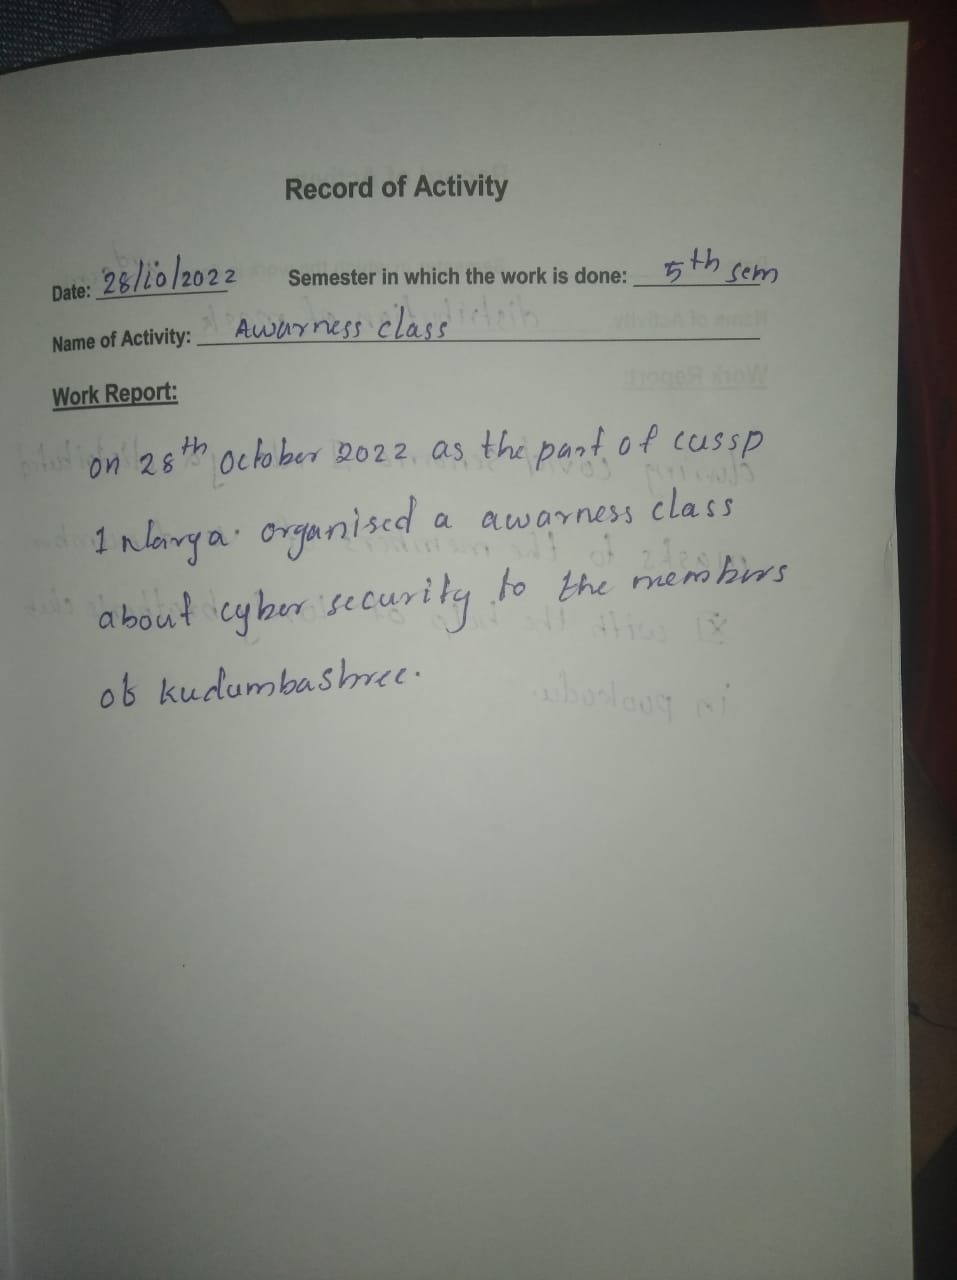 Record of Activity
Date: 28/10/2022 Semester in which the work is done: 5th sem
Name of Activity: Awarness class
Work Report:
on 28th October 2022 as the part of cussp
I organised a awarness class
about cyber security to the members
of kudumbashree.